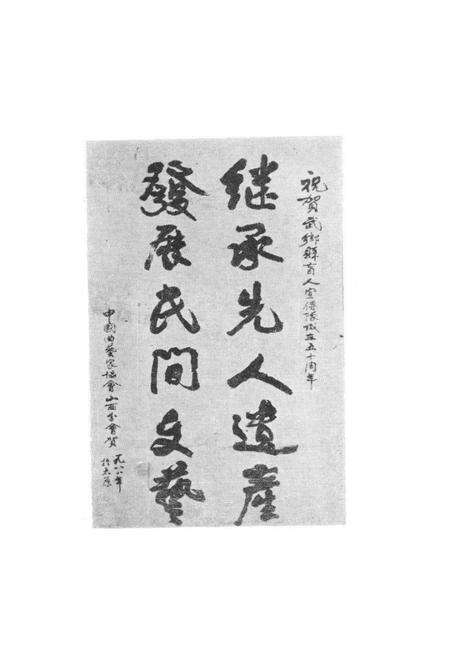 祝賀武鄉縣盲人宣傳隊成立五十周年
继承先人遺產
發展民间文藝
中國曲藝家協會山西分會賀
一九八八年
於太原